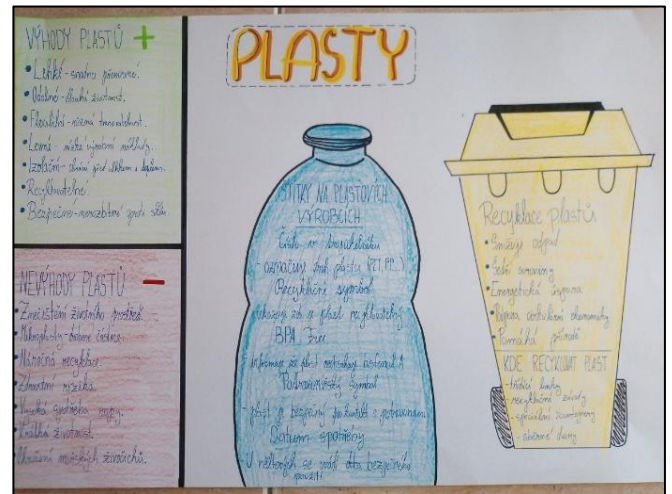 PLASTY
VÝHODY PLASTŮ +
• Lehké - snadno přenosné.
• Odolné - dlouhá životnost.
• Flexibilní - různá
• Levné - nízké výrobní náklady.
• Izolační -
• Recyklovatelné
• Bezpečné - nerozbitné proti sklu.
NEVÝHODY PLASTŮ -
• Znečištění životního prostředí.
• Mikroplasty -
• Náročná recyklace.
• Zdravotní rizika.
• Vysoká spotřeba ropy.
• Krátká životnost.
• Ohrožení mořských živočichů.
ŠTÍTKY NA PLASTOVÝCH
VÝROBCÍCH
Číslo v trojúhelníku
- označuje druh plastu (PET, PE...)
Recyklační symbol
zda je plast recyklovatelný
BPA Free
informace že plast neobsahuje bisfenol A
Potravinářský symbol
- plast je bezpečný s potravinami
Datum spotřeby
U některých se uvádí doba bezpečného
použití
Recyklace plastů
• Snižuje odpad
• Šetří suroviny
• Energetická úspora
• cirkulární ekonomiky
• Pomáhá přírodě
KDE RECYKLOVAT PLAST
- třídící linky
- recyklační závody
- speciální kontejnery
- sběrné dvory